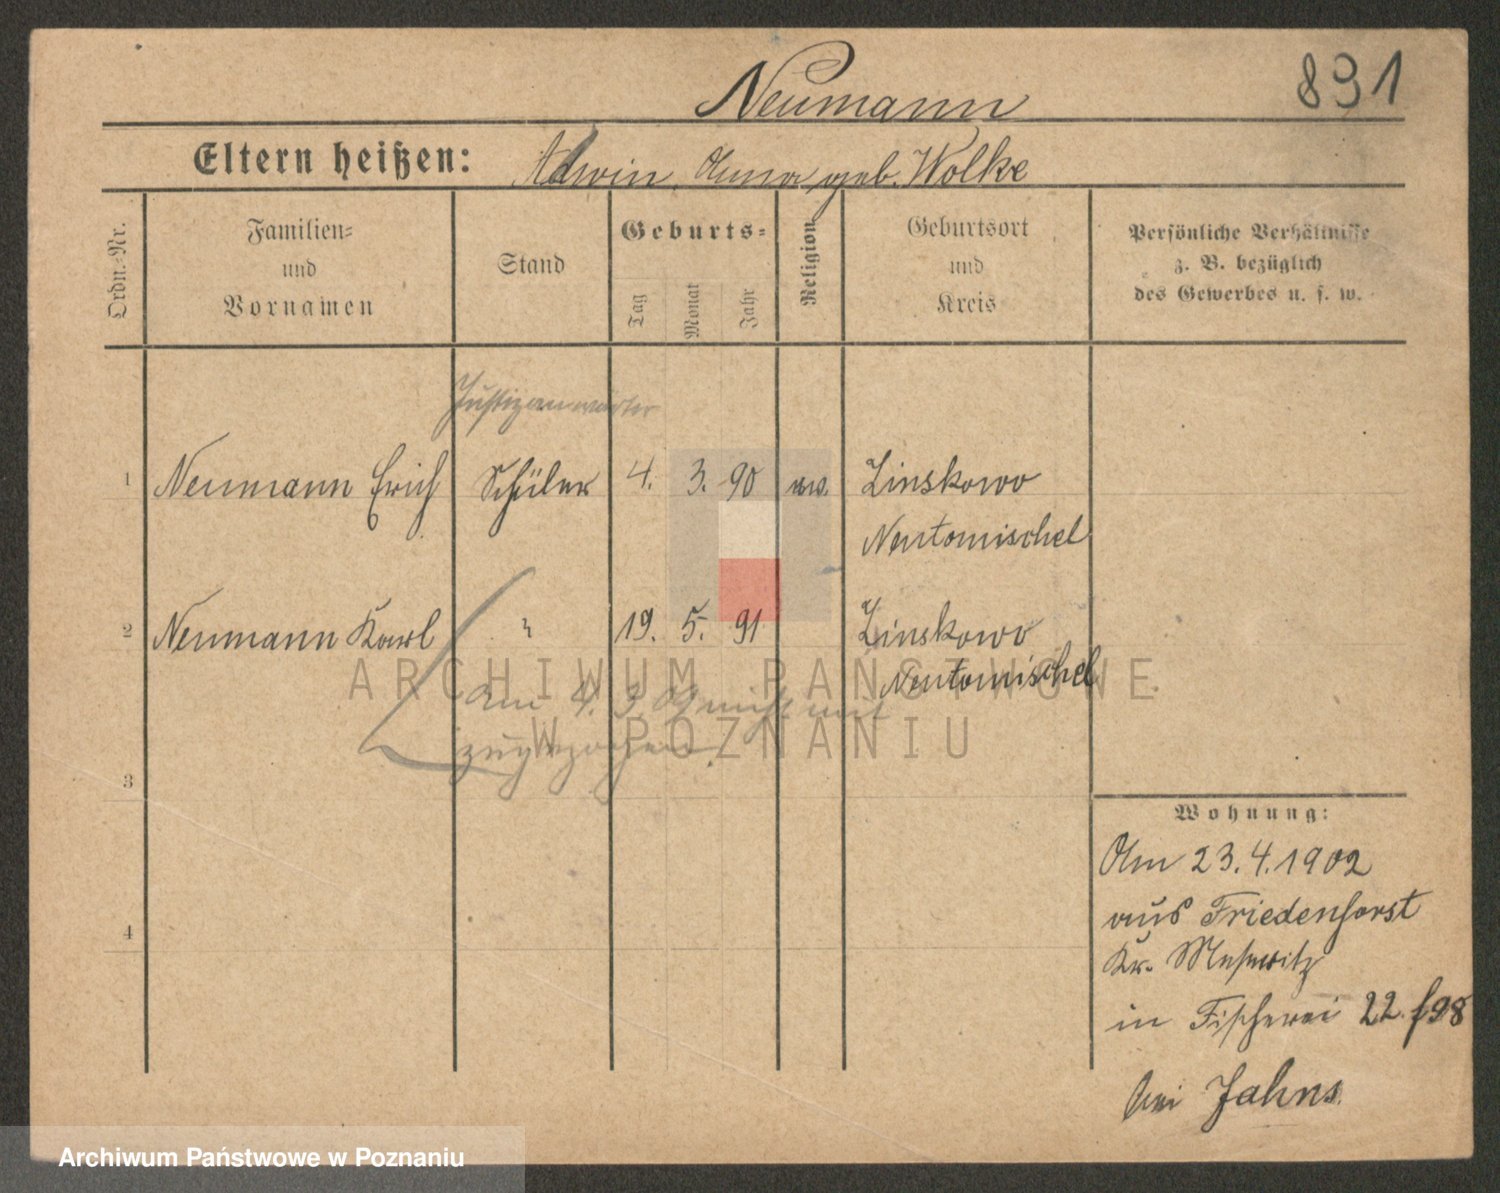 Neumann
891
Eltern heißen: Adwin, Anna geb. Wolke
Ordn.-Nr.
Familien- und Vornamen
Stand
Geburts-
Tag
Monat
Jahr
Religion
Geburtsort und Kreis
Persönliche Verhältnisse
z. B. bezüglich
des Gewerbes u. s. w.
Justizanwärter
1 Neumann Erich Schüler 4. 3. 90 ev. Linskowo
Neutomischel
2 Neumann Karl " 19. 5. 91 Linskowo
Neutomischel
Am 4. 3. 09 nicht mit
zugezogen.
3
4
Wohnung:
Am 23.4.1902
aus Friedenhorst
Kr. Meseritz
in Fischerei 22. f98
bei Jahns.
ARCHIWUM PAŃSTWOWE
W POZNANIU
Archiwum Państwowe w Poznaniu